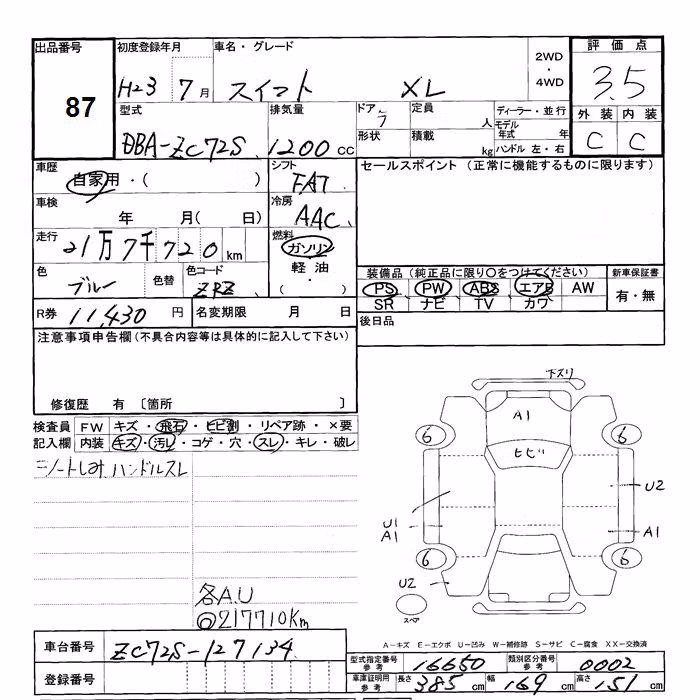 出品番号 87
初度登録年月 H23 7月
車名・グレード スイフト XL
2WD・4WD
評価点 3.5
外装 C 内装 C
型式 DBA-ZC72S
排気量 1200 cc
ドア 定員 人 ディーラー・並行
形状 積載 kg モデル年式 年
ハンドル 左・右
車歴 自家用・( )
シフト FAT
セールスポイント(正常に機能するものに限ります)
車検 年 月( 日)
冷房 AAC
走行 21万7千720km
燃料 ガソリン
軽油・( )
色 ブルー 色替 色コード ZRZ
装備品(純正品に限り〇をつけてください) 新車保証書
PS PW ABS エアB AW 有・無
SR ナビ TV カワ
R券 11,430円 名変期限 月 日
後日品
注意事項申告欄(不具合内容等は具体的に記入して下さい)
修復歴 有 〔箇所 〕
検査員 FW キズ・飛石・ヒビ割・リペア跡・×要
記入欄 内装 キズ・汚レ・コゲ・穴・スレ・キレ・破レ
シートしみ、ハンドルスレ
各A.U
◎217710Km
下ズリ
A1
6 6
ヒビ
U2
U1
A1 A1
6 6
U2
スペア
A-キズ E-エクボ U-凹み W-補修跡 S-サビ C-腐食 XX-交換済
車台番号 ZC72S-127134
型式指定番号 参考 16650 類別区分番号 参考 0002
登録番号
車庫証明用 参考 長さ 385cm 幅 169cm 高さ 151cm